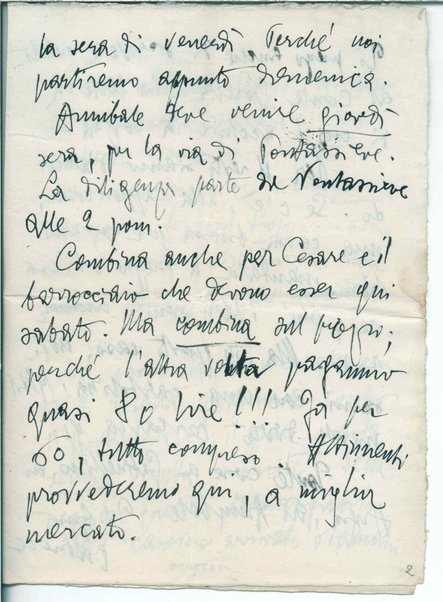 la sera di venerdì perché noi
partiremo appunto domenica.
Annibale deve venire giovedì
sera, per la via di Pontassieve.
La diligenza parte da Pontassieve
alle 2 pom.
Combina anche per Cesare e il
barrocciaio che devono esser qui
sabato. Ma combina sul prezzo;
perché l'altra volta pagammo
quasi 80 lire!!! Fa per
60, tutto compreso Altrimenti
provvederemo qui, a miglior
mercato.
2